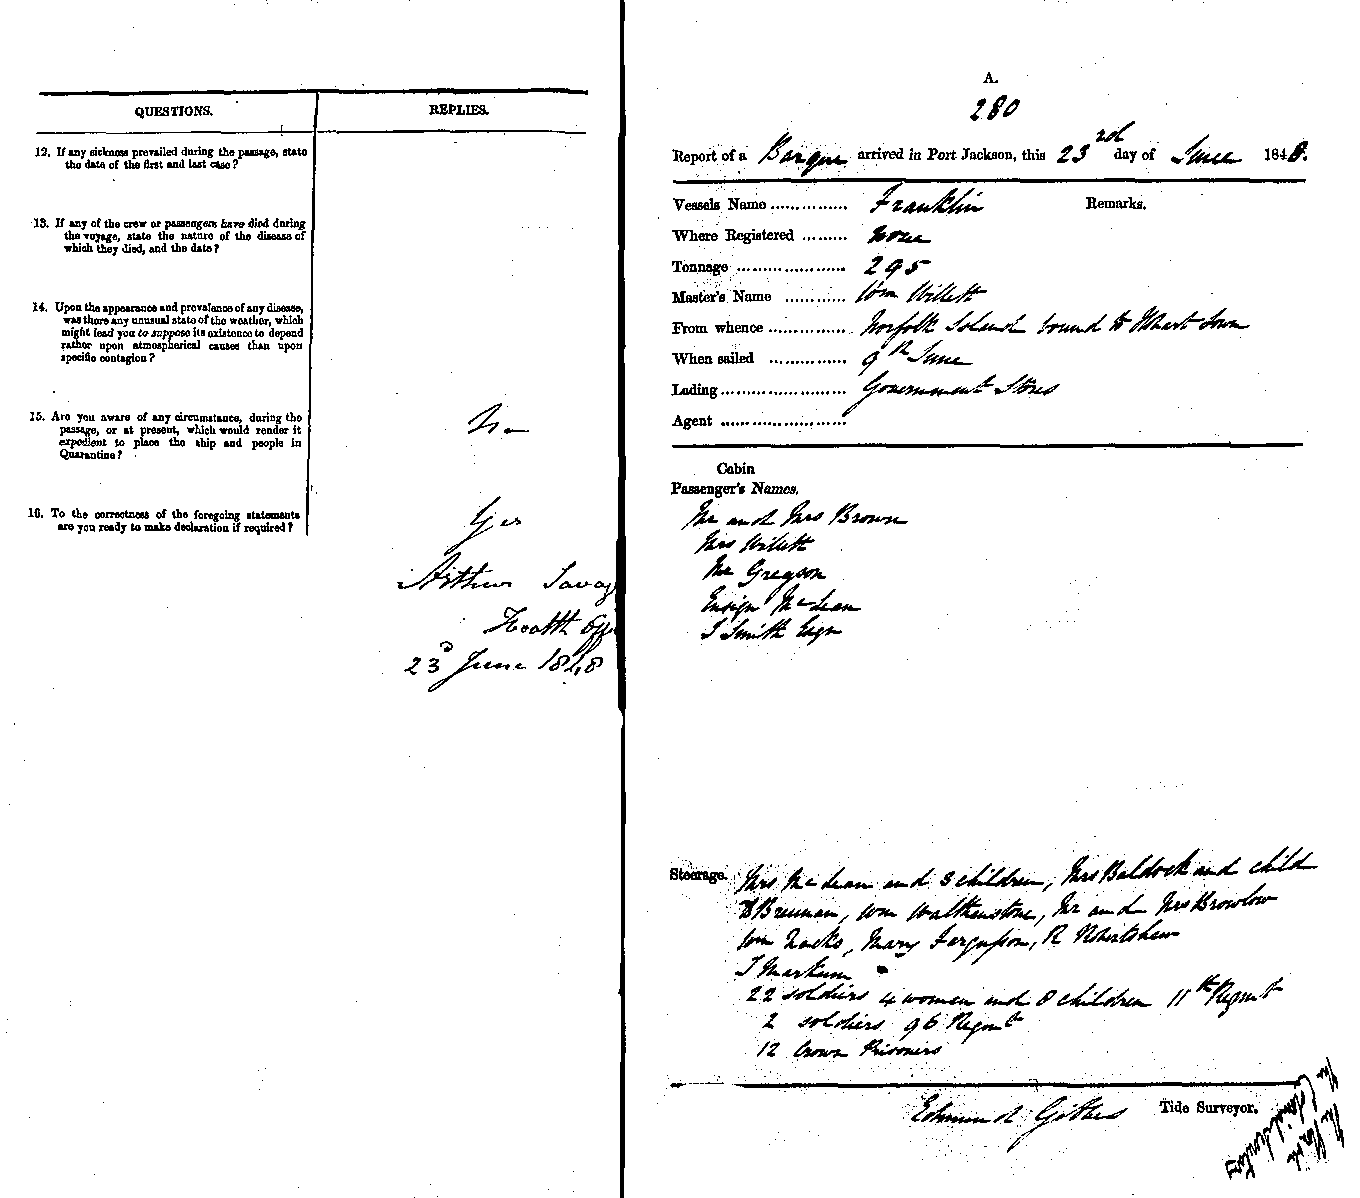 QUESTIONS. REPLIES.
12. If any sickness prevailed during the passage, state
the date of the first and last case?
13. If any of the crew or passengers have died during
the voyage, state the nature of the disease of
which they died, and the date?
14. Upon the appearance and prevalence of any disease,
was there any unusual state of the weather, which
might lead you to suppose its existence to depend
rather upon atmospherical causes than upon
specific contagion?
15. Are you aware of any circumstance, during the
passage, or at present, which would render it
expedient to place the ship and people in
Quarantine?
No
16. To the correctness of the foregoing statements
are you ready to make declaration if required?
Yes
Arthur Savag
Health Off
23d June 1848
A.
280
Report of a Barque arrived in Port Jackson, this 23rd day of June 1848.
Vessels Name ............... Franklin Remarks.
Where Registered ......... none
Tonnage ..................... 295
Master's Name ............ Wm Willett
From whence ............... Norfolk Island bound to Hobart Town
When sailed ............... 9th June
Lading ........................ Government Stores
Agent ........................
Cabin
Passenger's Names.
Mr and Mrs Brown
Mrs Willett
Mr Gregson
Ensign McLean
S Smith Esqr
Steerage. Mrs McLean and 3 children, Mrs Baldock and child
Brennan, Wm Walthenstone, Mr and Mrs Browlow
Wm Zacks, Mary Fergusson, R Robertshaw
J Markum
22 soldiers 4 women and 8 children 11th Regmt
2 soldiers 96 Regmt
12 Crown Prisoners
Edmund Gibbes Tide Surveyor.